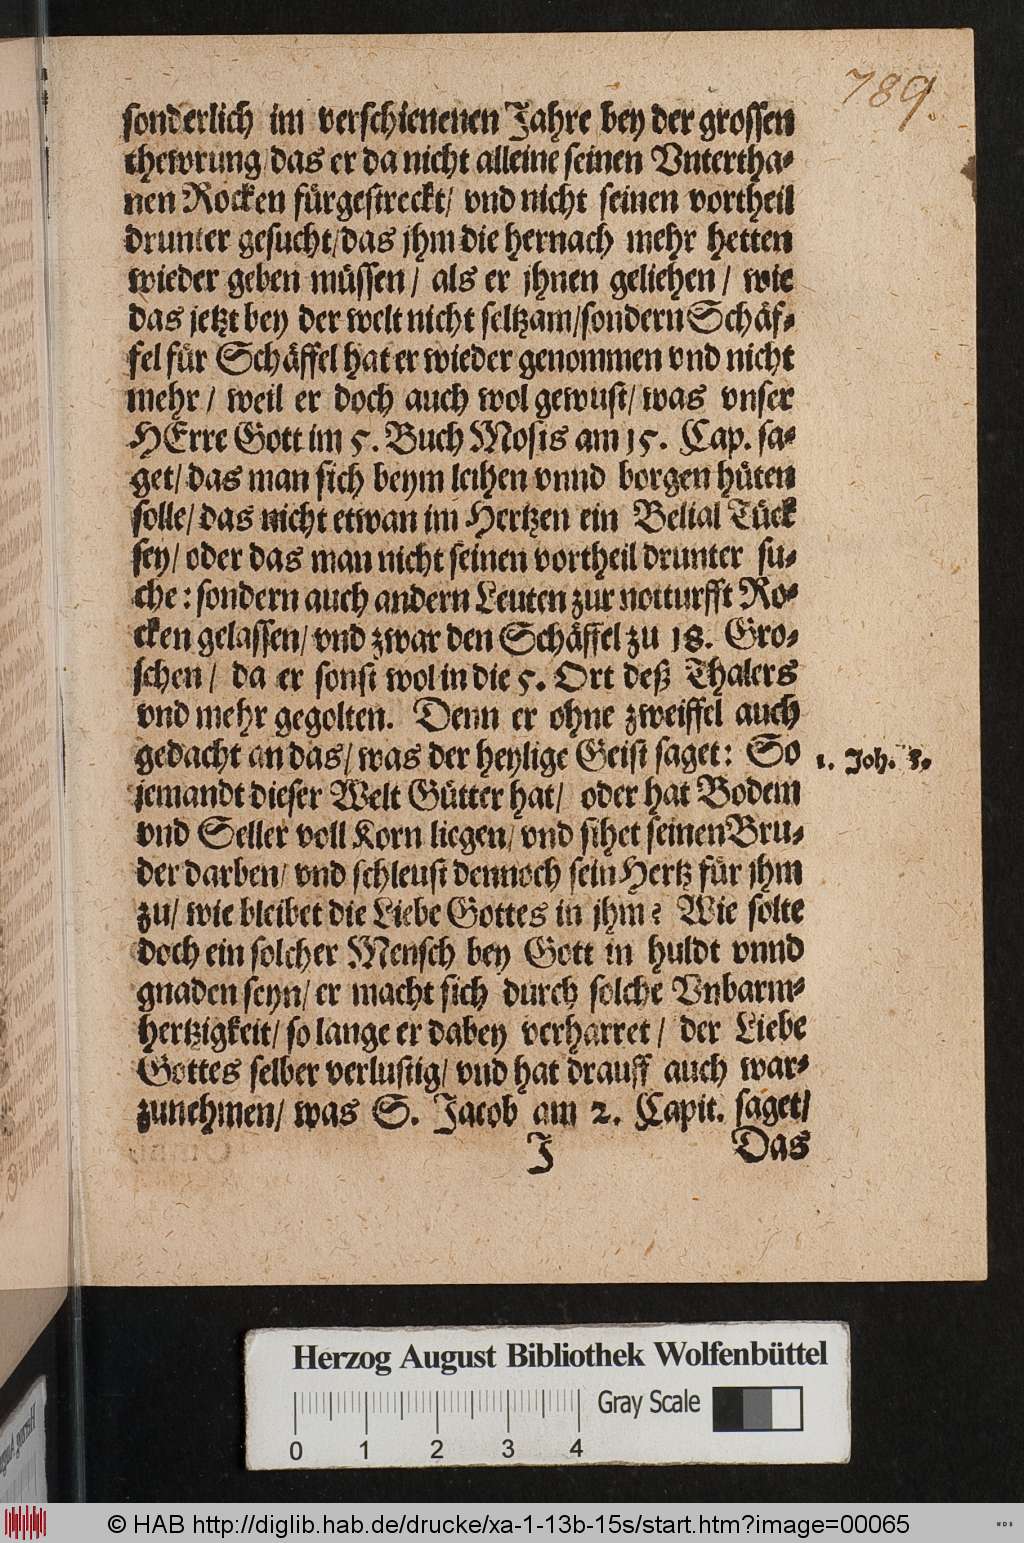 789.
sonderlich im verschienenen Jahre bey der grossen
thewrung/das er da nicht alleine seinen Vntertha-
nen Rocken fürgestreckt/ vnd nicht seinen vortheil
drunter gesucht/das jhm die hernach mehr hetten
wieder geben müssen/ als er jhnen geliehen/ wie
das jetzt bey der welt nicht seltzam/sondern Schäf-
fel für Schäffel hat er wieder genommen vnd nicht
mehr/ weil er doch auch wol gewust/ was vnser
HErre Gott im 5. Buch Mosis am 15. Cap. sa-
get/ das man sich beym leihen vnnd borgen hüten
solle/ das nicht etwan im Hertzen ein Belial Tück
sey/ oder das man nicht seinen vortheil drunter su-
che: sondern auch andern Leuten zur notturfft Ro-
cken gelassen/ vnd zwar den Schäffel zu 18. Gro-
schen/ da er sonst wol in die 5. Ort deß Thalers
vnd mehr gegolten. Denn er ohne zweiffel auch
gedacht an das/ was der heylige Geist saget: So
1. Joh. 3.
jemandt dieser Welt Gütter hat/ oder hat Bodem
vnd Seller voll Korn liegen/ vnd sihet seinen Bru-
der darben/ vnd schleust dennoch sein Hertz für jhm
zu/ wie bleibet die Liebe Gottes in jhm? Wie solte
doch ein solcher Mensch bey Gott in huldt vnnd
gnaden seyn/ er macht sich durch solche Vnbarm-
hertzigkeit/ so lange er dabey verharret/ der Liebe
Gottes selber verlustig/ vnd hat drauff auch war-
zunehmen/ was S. Jacob am 2. Capit. saget/
J
Das
Herzog August Bibliothek Wolfenbüttel
0 1 2 3 4
Gray Scale
© HAB http://diglib.hab.de/drucke/xa-1-13b-15s/start.htm?image=00065